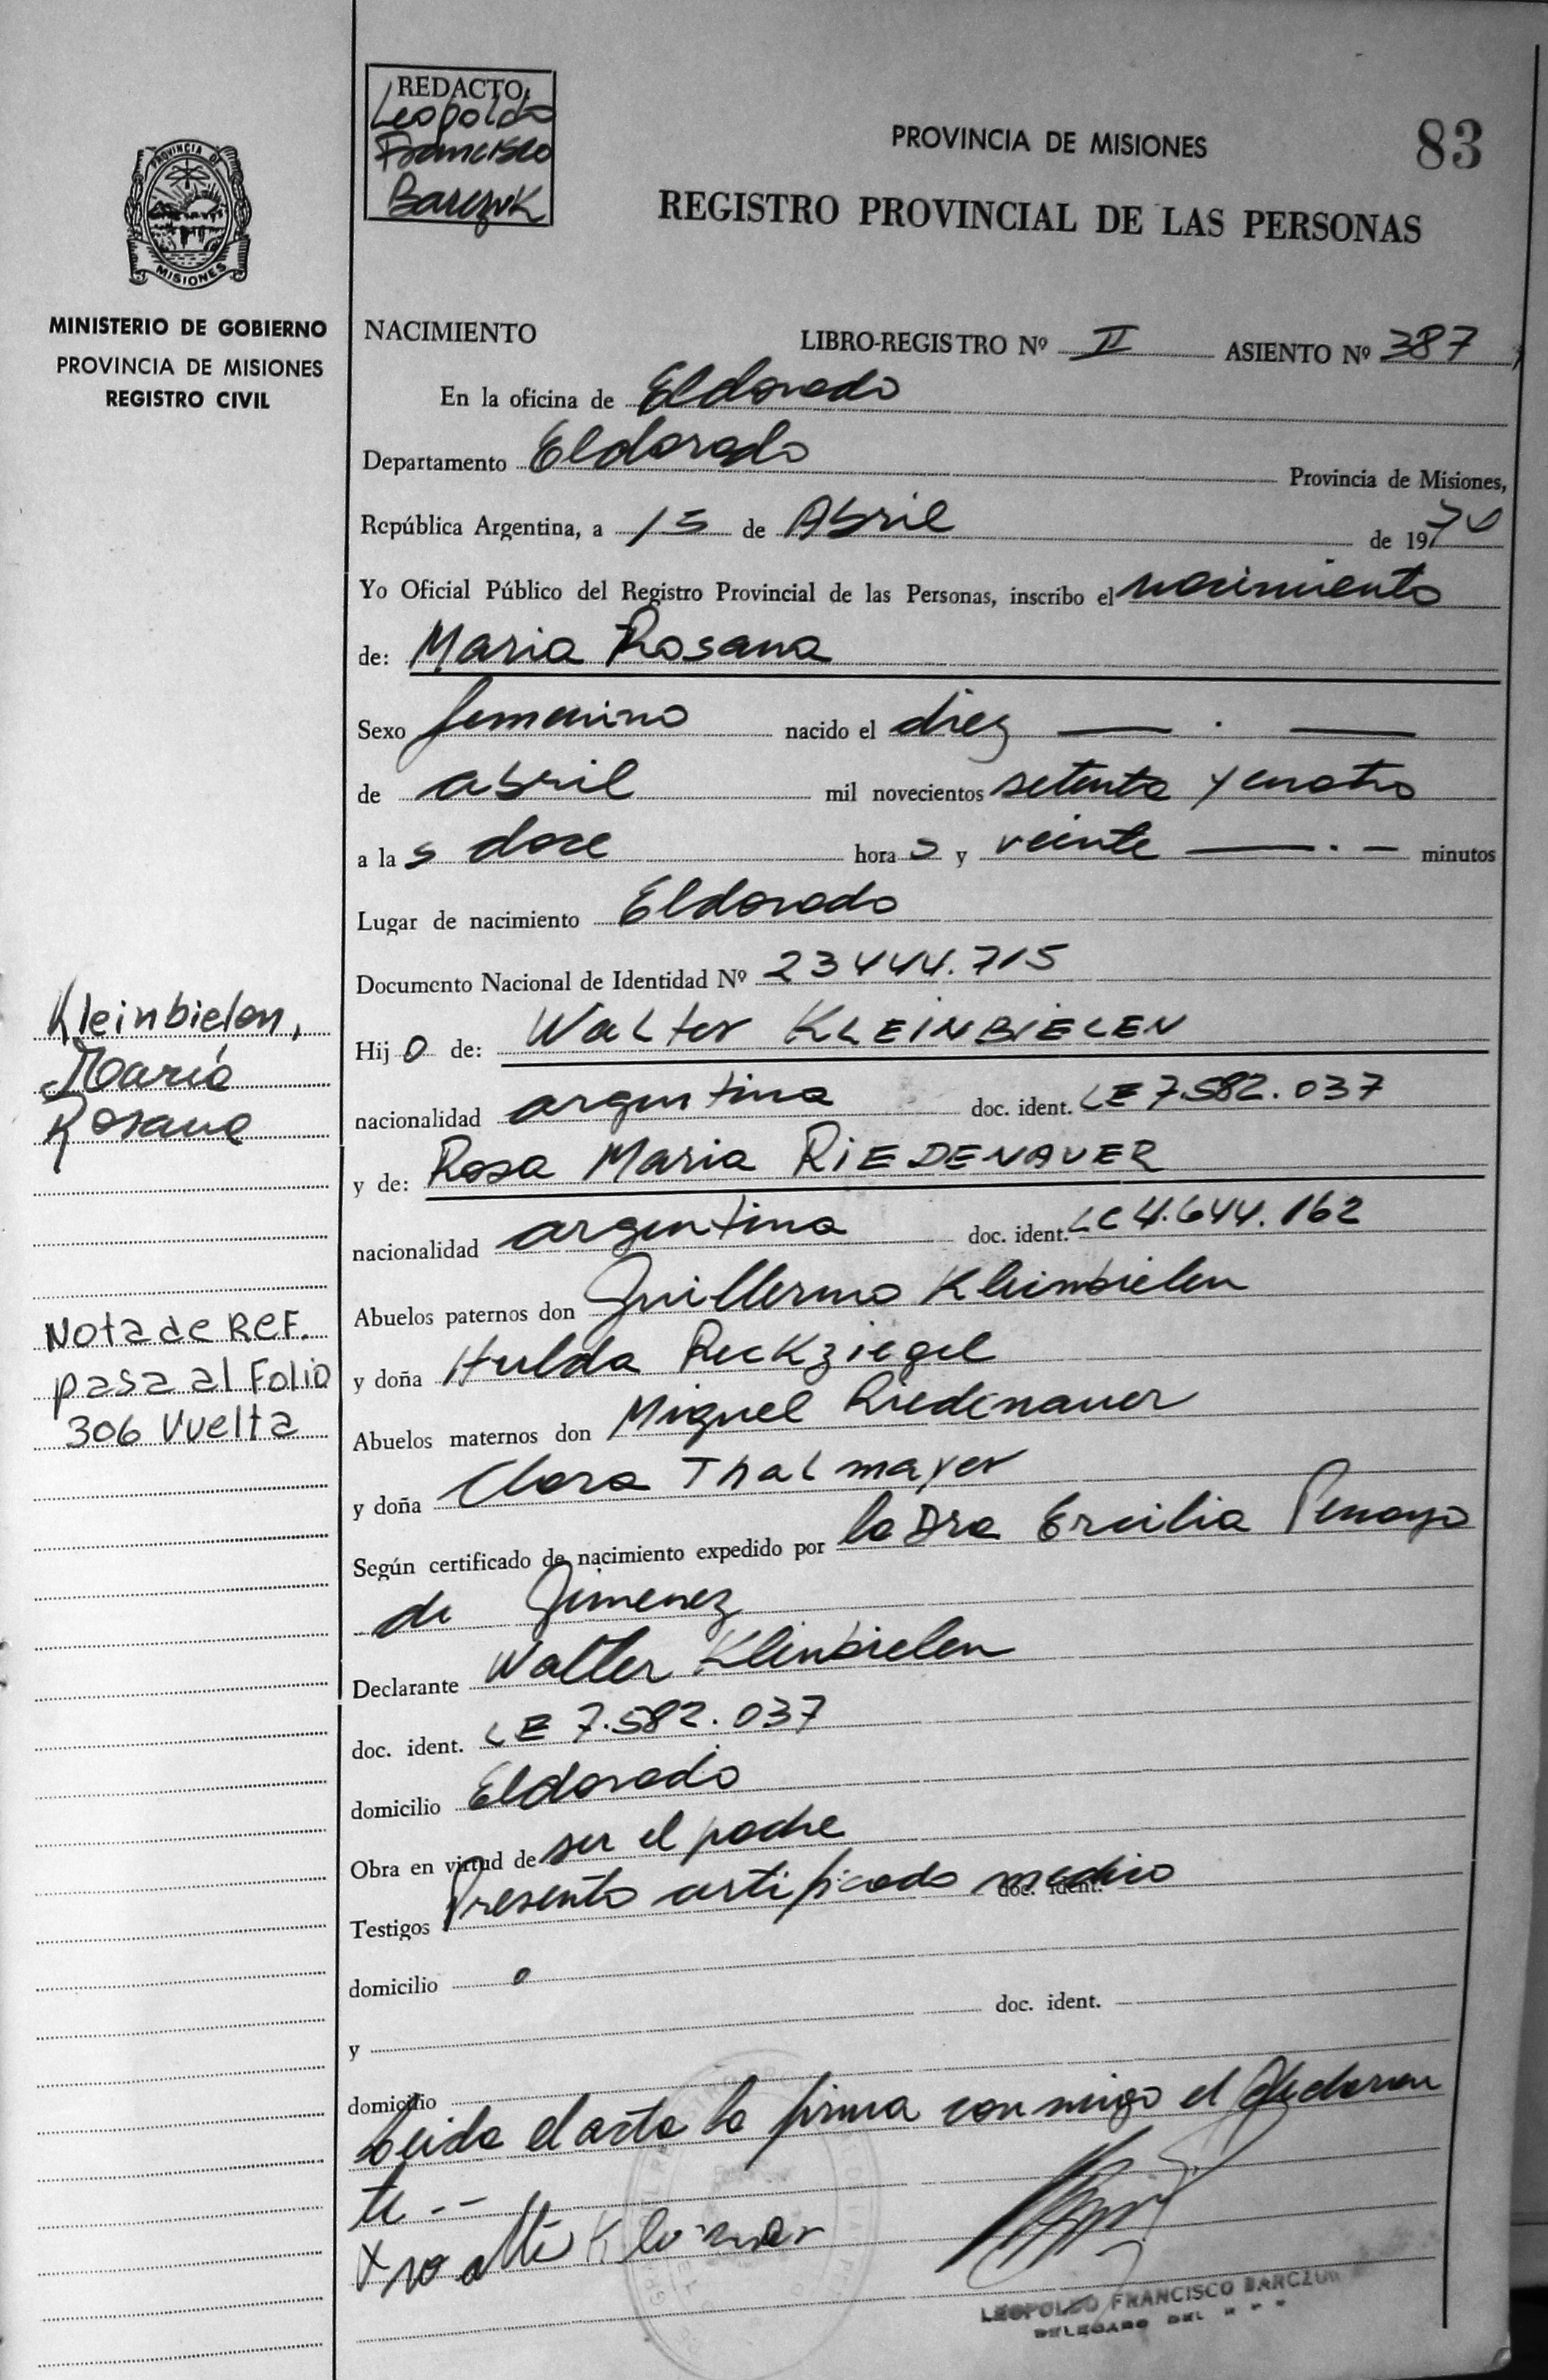 REDACTO:
Leopoldo
Francisco
Barczuk
PROVINCIA DE MISIONES
83
REGISTRO PROVINCIAL DE LAS PERSONAS
PROVINCIA DE
MISIONES
MINISTERIO DE GOBIERNO
PROVINCIA DE MISIONES
REGISTRO CIVIL
NACIMIENTO LIBRO-REGISTRO Nº II ASIENTO Nº 387
En la oficina de Eldorado
Departamento Eldorado Provincia de Misiones,
República Argentina, a 15 de Abril de 1974
Yo Oficial Público del Registro Provincial de las Personas, inscribo el nacimiento
de: Maria Rosana
Sexo femenino nacido el diez
de abril mil novecientos setenta y cuatro
a las doce horas y veinte minutos
Lugar de nacimiento Eldorado
Documento Nacional de Identidad Nº 23444.715
Hijo de: Walter KLEINBIELEN
nacionalidad argentina doc. ident. LE 7.582.037
y de: Rosa Maria RIEDENAUER
nacionalidad argentina doc. ident. LC 4.644.162
Abuelos paternos don Guillermo Kleinbielen
y doña Hulda Reckziegel
Abuelos maternos don Miguel Riedenauer
y doña Clara Thalmayer
Según certificado de nacimiento expedido por la Dra Ercilia Penayo
de Jimenez
Declarante Walter Kleinbielen
doc. ident. LE 7.582.037
domicilio Eldorado
Obra en virtud de ser el padre
Testigos Presento certificado medico doc. ident.
domicilio
y doc. ident.
domicilio
Leida el acta la firma con migo el declaran
te.--
LEOPOLDO FRANCISCO BARCZUK
DELEGADO DEL
Kleinbielen,
María
Rosana
Nota de REF.
pasa al Folio
306 Vuelta